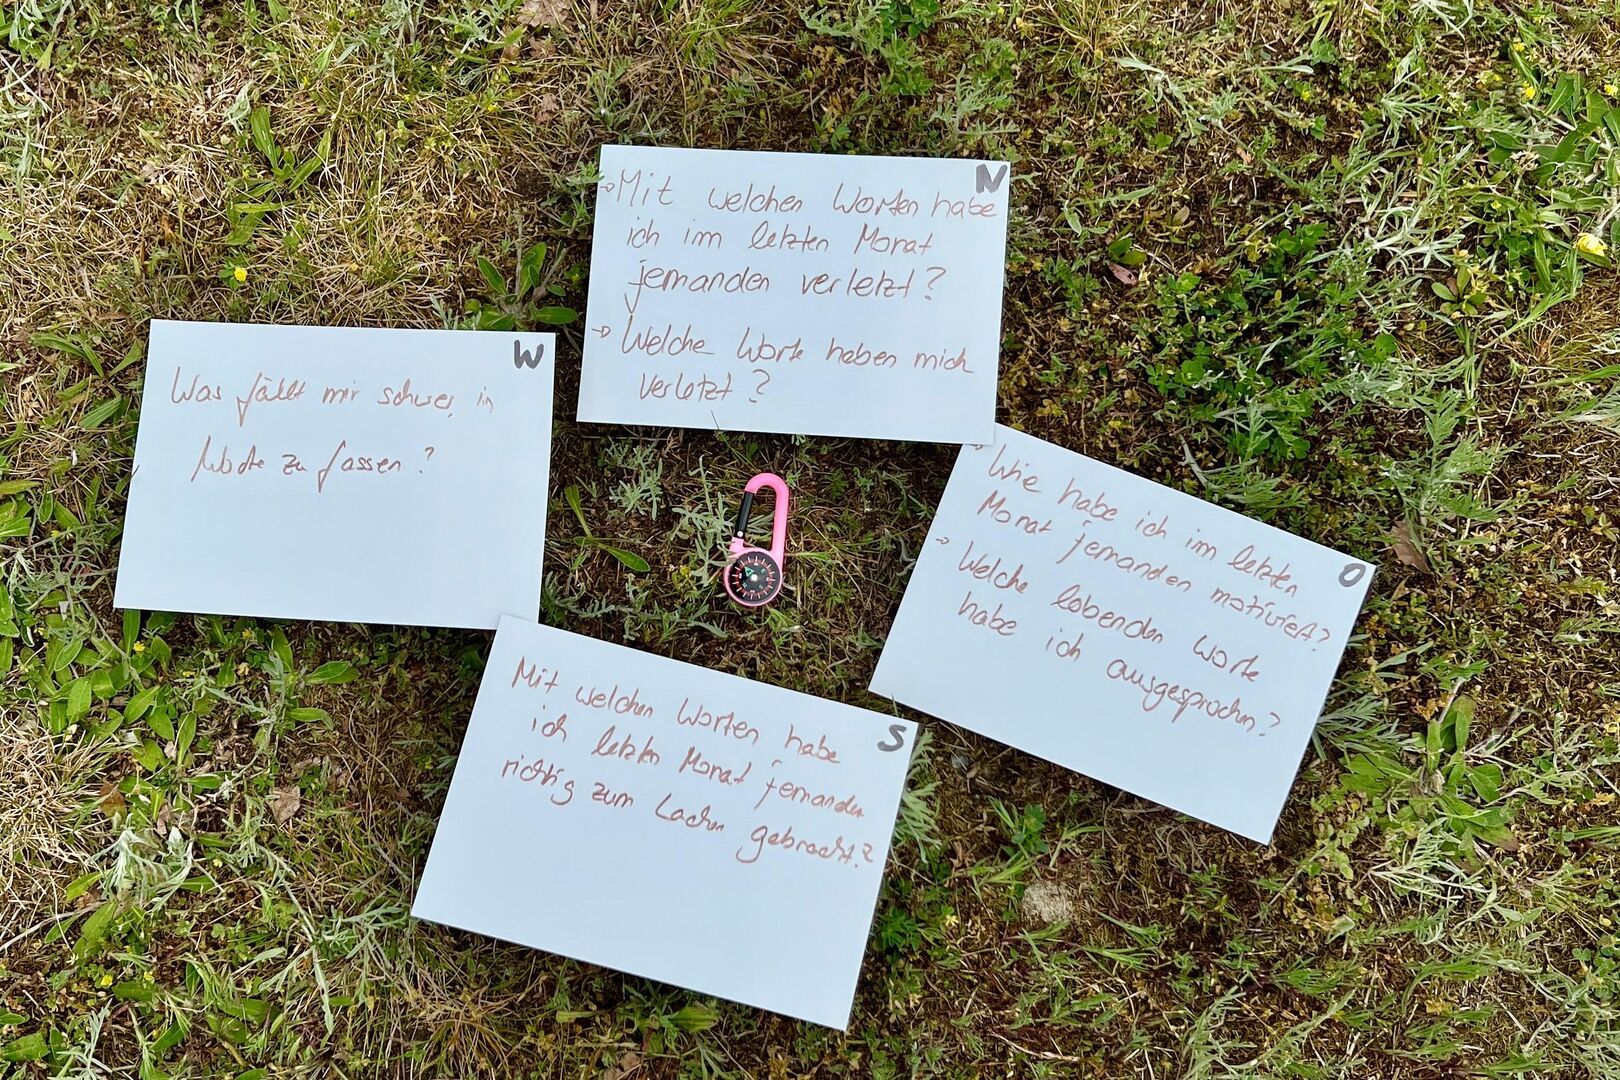 N
→ Mit welchen Worten habe
ich im letzten Monat
jemanden verletzt?
→ Welche Worte haben mich
verletzt?
W
Was fällt mir schwer, in
Worte zu fassen?
O
→ Wie habe ich im letzten
Monat jemanden motiviert?
→ Welche lobenden Worte
habe ich ausgesprochen?
S
Mit welchen Worten habe
ich letzten Monat jemanden
richtig zum Lachen gebracht?